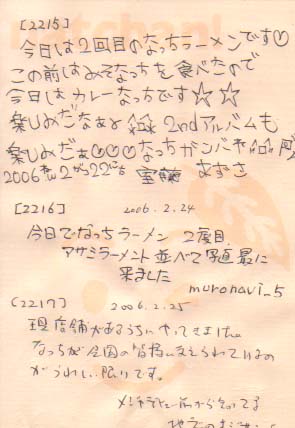 [2215]
今日は2回目のなっちラーメンです♡
この前はみそなっちを食べたので
今日はカレーなっちです☆☆
楽しみだなぁ♪ 2ndアルバムも
楽しみだぁ♡♡♡なっちガンバ
2006 2 22 あずさ
[2216] 2006.2.24
今日でなっちラーメン 2度目
アサミラーメント並べて写真 最に
来ました
muronavi_5
[2217] 2006.2.25
現店舗があるうちにやってきました。
なっちが全国の皆様に支えられているの
がうれしい限りです。